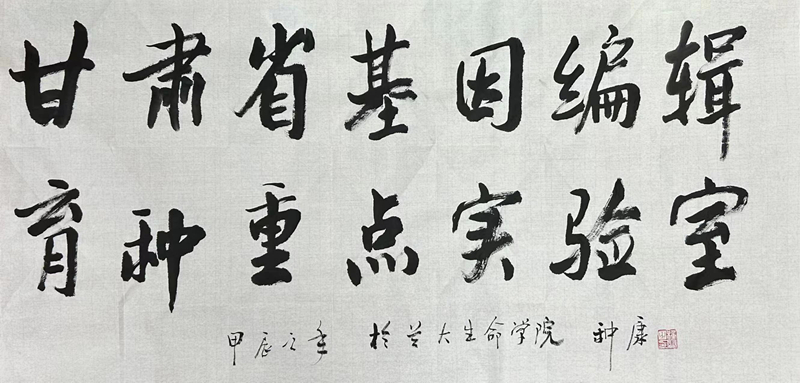 甘肃省基因编辑
育种重点实验室
甲辰之年 於兰大生命学院 种康